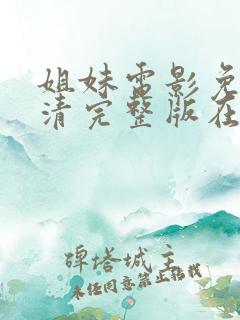 姐妹电影免
清完整版在
碑塔城主
未经同意禁止转载